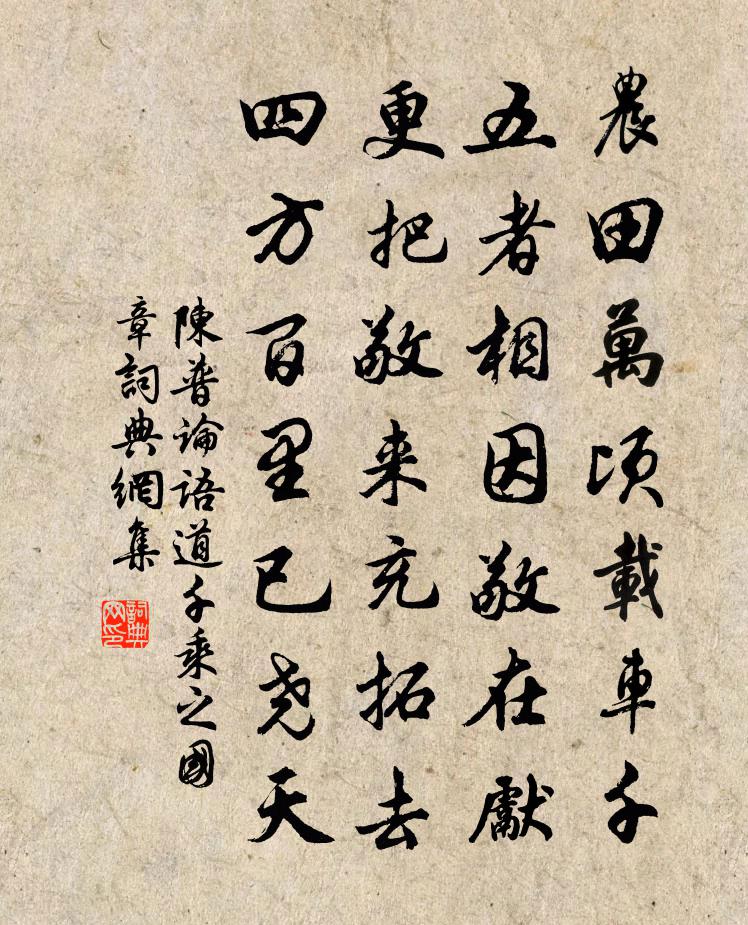 農田萬頃載車千
五者相因敬在獻
更把敬来充拓去
四方百里已尧天
陳普論語道千乘之國
章詞典網集
詞典网印